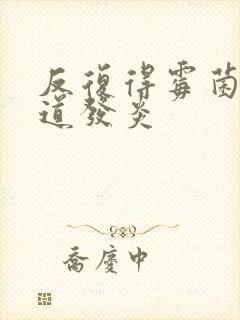 反復得霉菌
道發炎
喬慶中